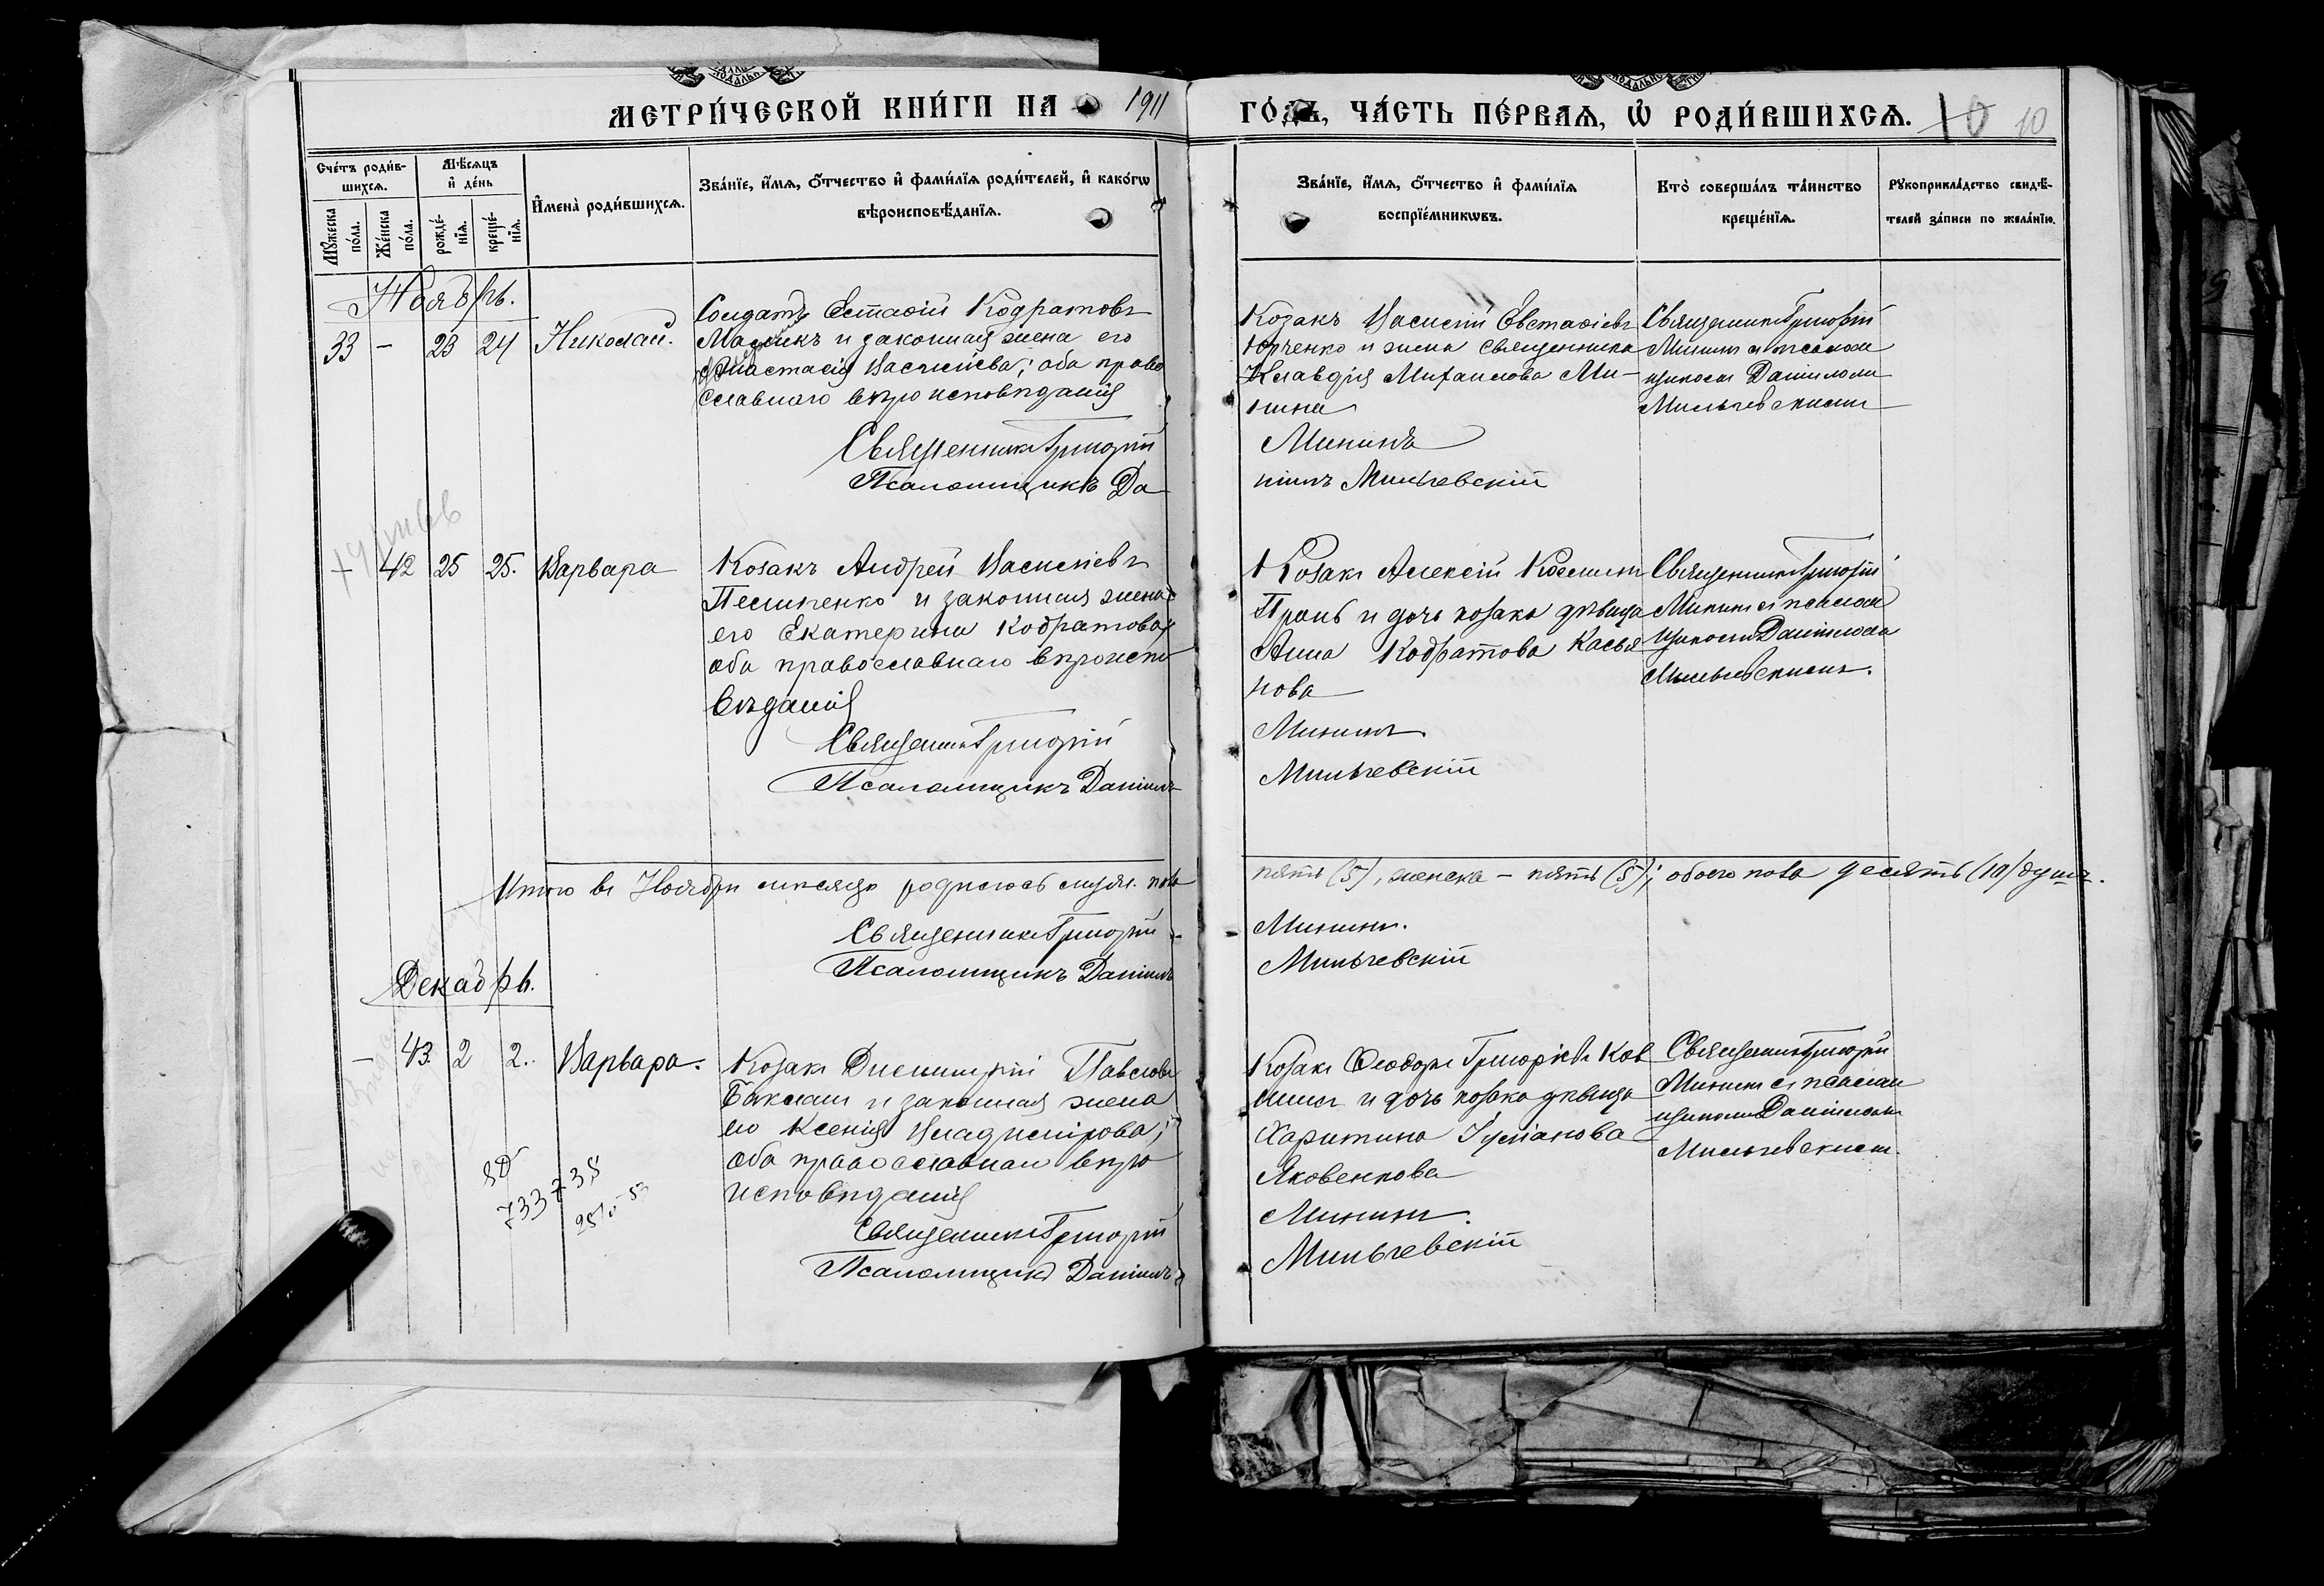 МЕТРИ́ЧЕСКОЙ КНИ́ГИ НА 1911 ГО́ДЪ, ЧА́СТЬ ПЕ́РВАЯ, Ѡ РОДИ́ВШИХСЯ. 10 10
Сче́тъ роди́в-
шихся.
Мѣ́сяцъ
и де́нь
Му́жеска
по́ла.
Же́нска
по́ла.
рожде́-
нїя.
креще́-
нїя.
Имена̀ роди́вшихся.
Зва́нїе, и́мя, о́тчество и фами́лїя роди́телей, и како́гѡ
вѣроисповѣ́данїя.
Зва́нїе, и́мя, о́тчество и фами́лїя
воспрїе́мникѡвъ.
Кто̀ соверша́лъ та́инство
креще́нїя.
Рꙋкоприкла́дство свидѣ́-
телей за́писи по жела́нїю.
Ноябрь.
33 – 23 24 Николай.
Солдатъ Естафій Кодратовъ
и законная жена его
Анастасія Василіева; оба право
славнаго вѣроисповѣданія
Священникъ Григорій
Псаломщикъ Да
Козакъ Василій Евстафіевъ
Юрченко и жена священника
Клавдія Михаилова Ми-
нина
Мининъ
ніилъ Мильчевскій
Священникъ Григорій
Мининъ съ псалом
щикомъ Даніиломъ
Мильчевскимъ
– 42 25 25. Варвара
Козакъ Андрей Васильевъ
Пелипенко и законная жена
его Екатерина Кодратова
оба православнаго вѣроиспо
вѣданія
Священникъ Григорій
Псаломщикъ Даніилъ
Козакъ Алексій
и дочь козака дѣвица
Анна Кодратова Касья
нова
Мининъ.
Мильчевскій
Священникъ Григорій
Мининъ съ псалом
щикомъ Даніиломъ
Мильчевскимъ.
Итого въ Ноябрѣ мѣсяцѣ родилось муж. пола
пять (5), женска – пять (5); обоего пола десять (10) душъ.
Священникъ Григорій
Псаломщикъ Даніилъ
Мининъ.
Мильчевскій
Декабрь.
– 43 2 2. Варвара.
Козакъ Димитрій Павловъ
Бакланъ и законная жена
его Ксенія Владимірова;
оба православнаго вѣро
исповѣданія
Священникъ Григорій
Псаломщикъ Даніилъ
Козакъ Ѳеодоръ Григоріевъ Ков
и дочь козака дѣвица
Харитина Іуліанова
Яковенкова
Мининъ.
Мильчевскій
Священникъ Григорій
Мининъ съ псалом
щикомъ Даніиломъ
Мильчевскимъ.